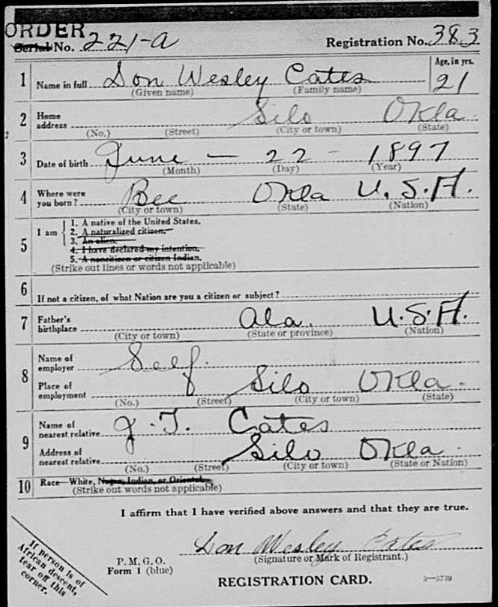 ORDER
Serial No. 221-A Registration No. 383
1 Name in full Don Wesley Cates Age, in yrs. 21
(Given name) (Family name)
2 Home address Silo Okla
(No.) (Street) (City or town) (State)
3 Date of birth June — 22 - 1897
(Month) (Day) (Year)
4 Where were you born? Bee Okla U.S.A.
(City or town) (State) (Nation)
5 I am
1. A native of the United States.
2. A naturalized citizen.
3. An alien.
4. I have declared my intention.
5. A noncitizen or citizen Indian.
(Strike out lines or words not applicable)
6 If not a citizen, of what Nation are you a citizen or subject?
7 Father's birthplace Ala. U.S.A.
(City or town) (State or province) (Nation)
8 Name of employer Self.
Place of employment Silo Okla.
(No.) (Street) (City or town) (State)
9 Name of nearest relative J. T. Cates
Address of nearest relative Silo Okla.
(No.) (Street) (City or town) (State or Nation)
10 Race—White, Negro, Indian, or Oriental.
(Strike out words not applicable)
I affirm that I have verified above answers and that they are true.
Don Wesley Cates
(Signature or Mark of Registrant.)
P.M.G.O.
Form 1 (blue)
REGISTRATION CARD. 3—5739
If person is of
African descent,
tear off this
corner.